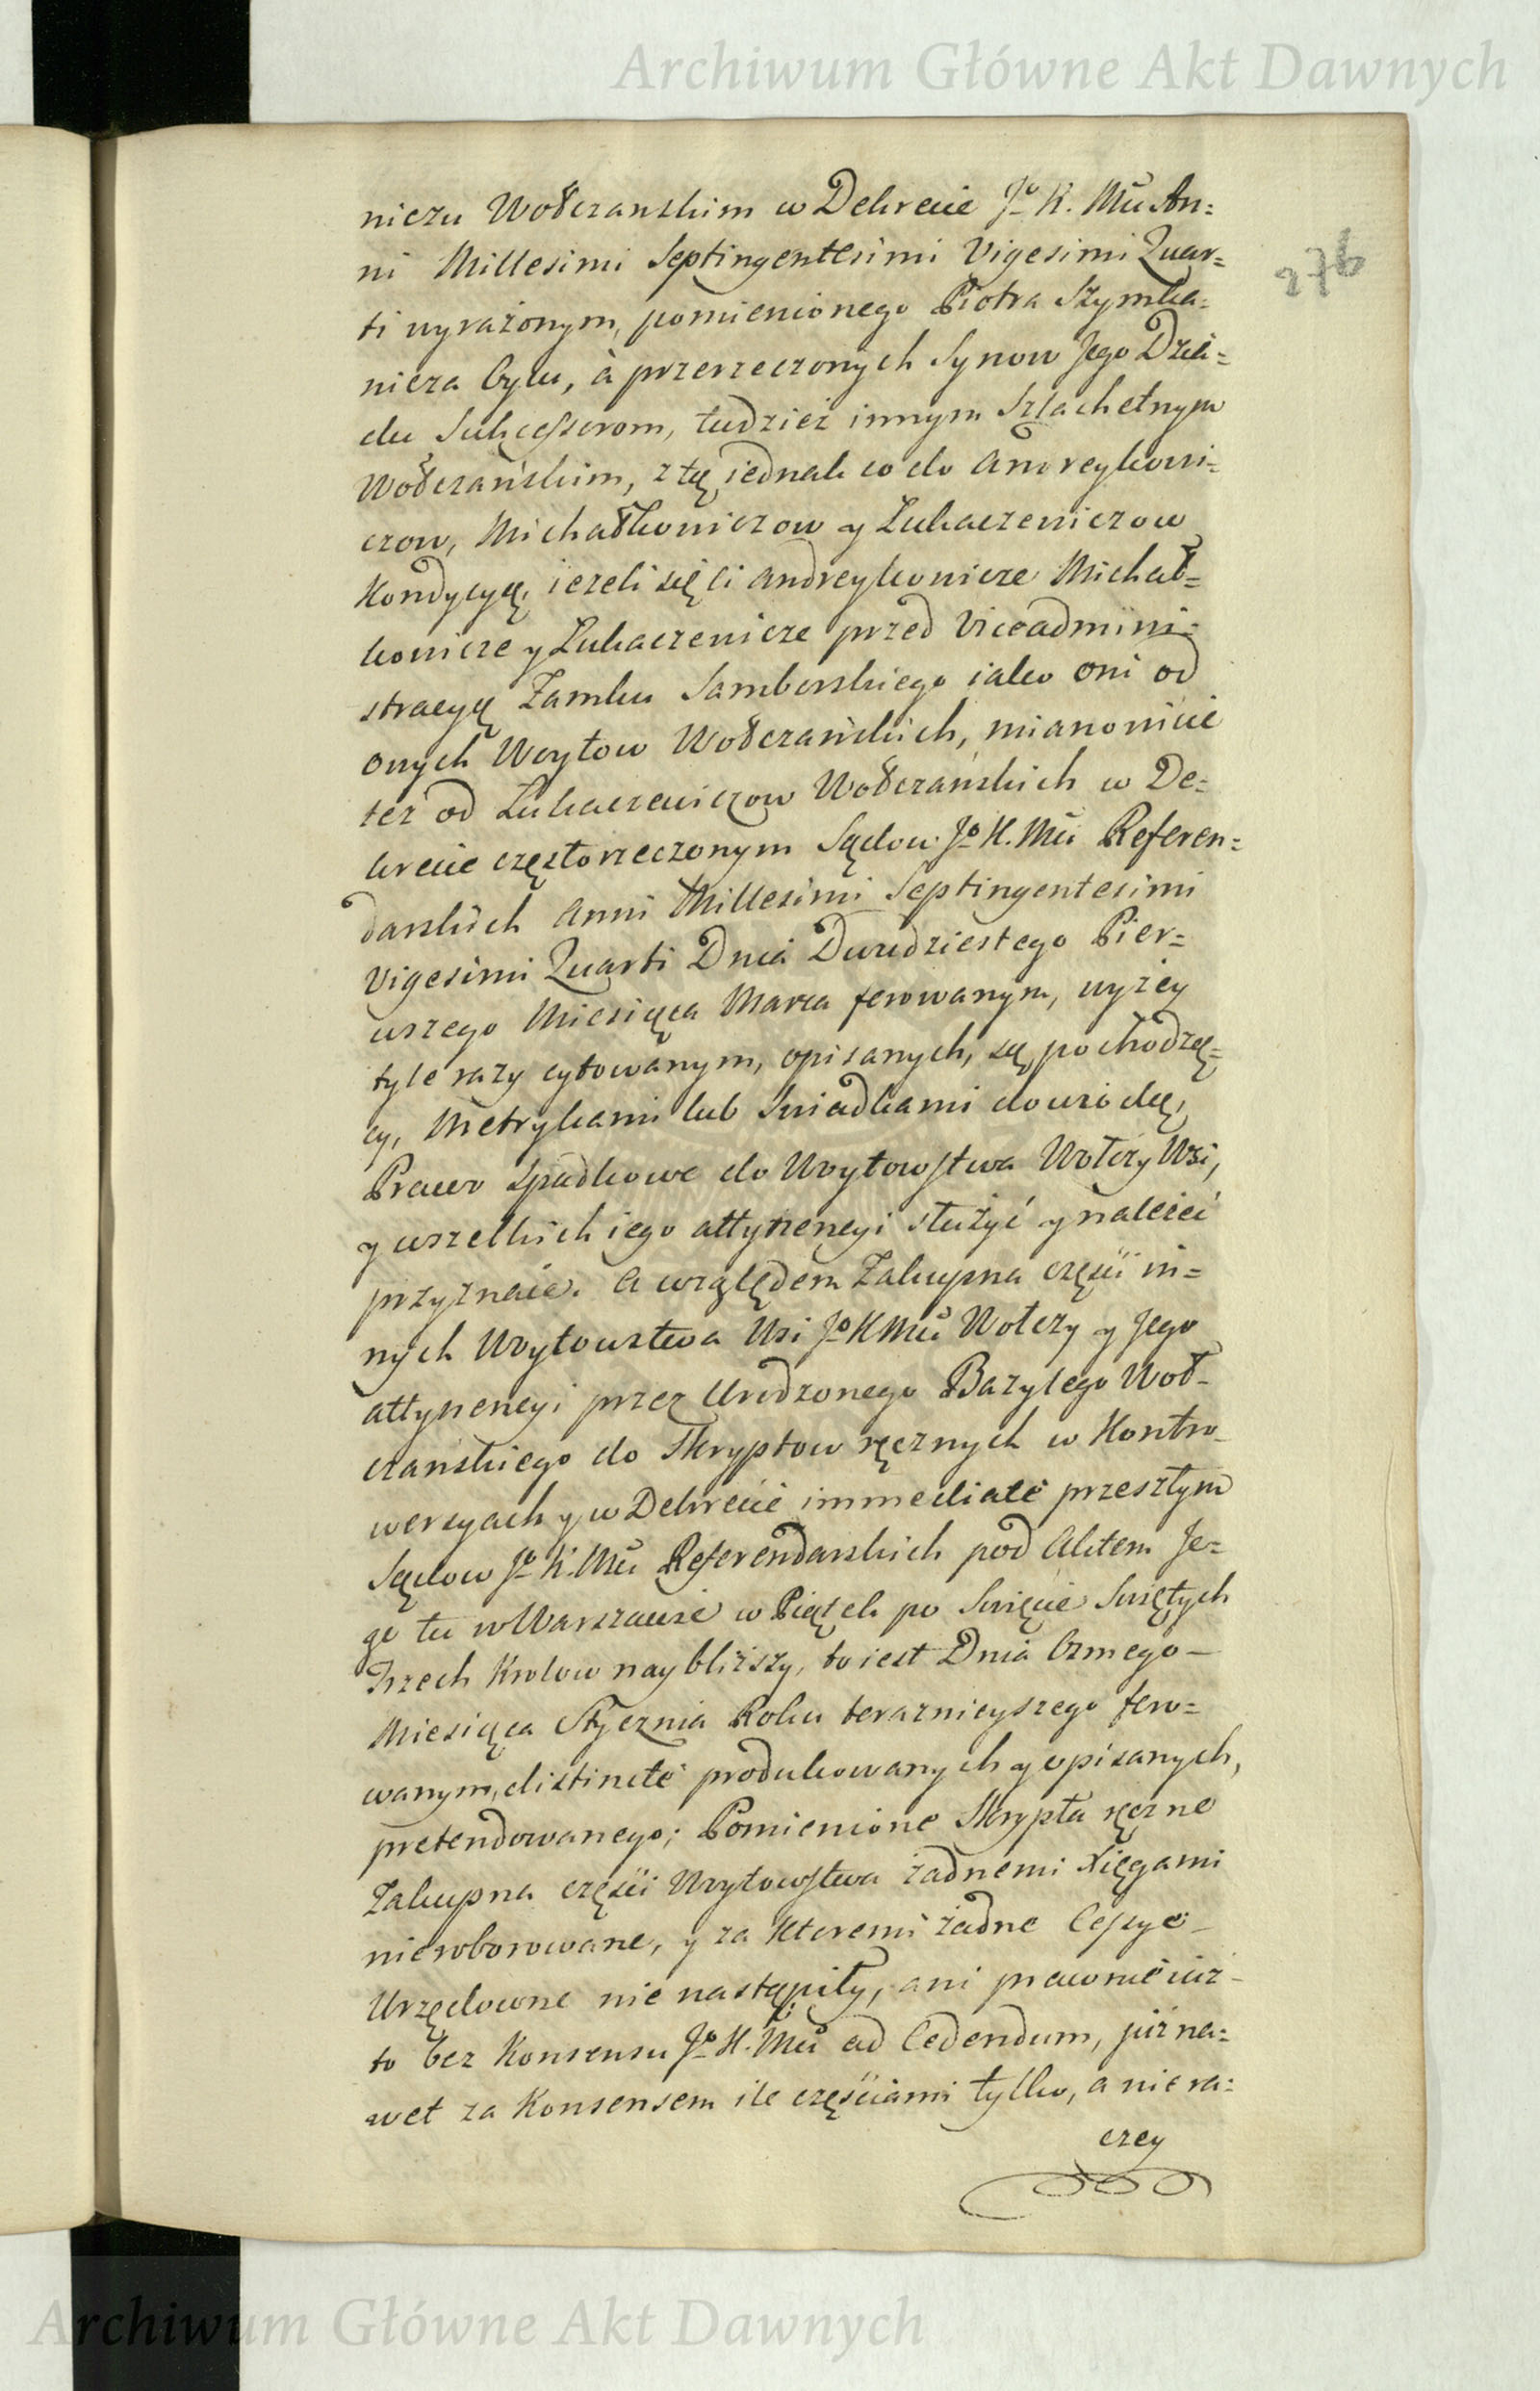 Archiwum Główne Akt Dawnych
276
niczu Wołczanskim w Dekrecie Jº K. Mci An=
ni Millesimi Septingentesimi Vigesimi Quar=
ti wyrażonym, pomienionego Piotra Szymka=
nicza Oycu, à przerzeczonych Synow Jego Dzia=
du Sukcessorom, tudzież innym Szlachetnym
Wołczańskim, z tą iednak co do Andreykowi=
czow, Michałkowiczow y Lukaczewiczow
Kondycyą, ieżeli się ci Andreykowicze Michał=
kowicze y Lukaczewicze przed Viceadmini=
stracyą Zamku Samborskiego iako oni od
onych Woytow Wołczańskich, mianowicie
też od Lukaczewiczow Wołczańskich w De=
krecie częstorzeczonym Sądow Jº K. Mci Referen=
darskich Anni Millesimi Septingentesimi
Vigesimi Quarti Dnia Dwudziestego Pier=
wszego Miesiąca Marca ferowanym, wyżey
tyle razy cytowanym, opisanych, są pochodzą=
cy, Metrykami lub Swiadkami dowiodą,
Prawo Spadkowe do Woytowstwa Wołczy Wsi,
y wszelkich iego attynencyi służyć y należeć
przyznaie. A względem Zakupna części in=
nych Woytowstwa Wsi Jº K Mci Wołczy y Jego
attynencyi przez Urodzonego Bazylego Woł-
czanskiego do Skryptow ręcznych w Kontro-
wersyach y w Dekrecie immediatè przeszłym
Sądow Jº K. Mci Referendarskich pod Aktem Je=
go tu w Warszawie w Piątek po Swięcie Swiętych
Trzech Krolow naybliższy, to iest Dnia Osmego -
Miesiąca Stycznia Roku teraznieyszego fero=
wanym, distinctè produkowanych y opisanych,
pretendowanego; Pomienione Skrypta ręczne
Zakupna części Woytowstwa żadnemi Xięgami
nieroborowane, y za ktoremi żadne Cessye -
Urzędowne nie nastąpiły, ani prawnie iuż -
to bez Konsensu Jº K. Mci ad Cedendum, już na=
wet za Konsensem ile częściami tylko, a nie ra=
czey
Archiwum Główne Akt Dawnych